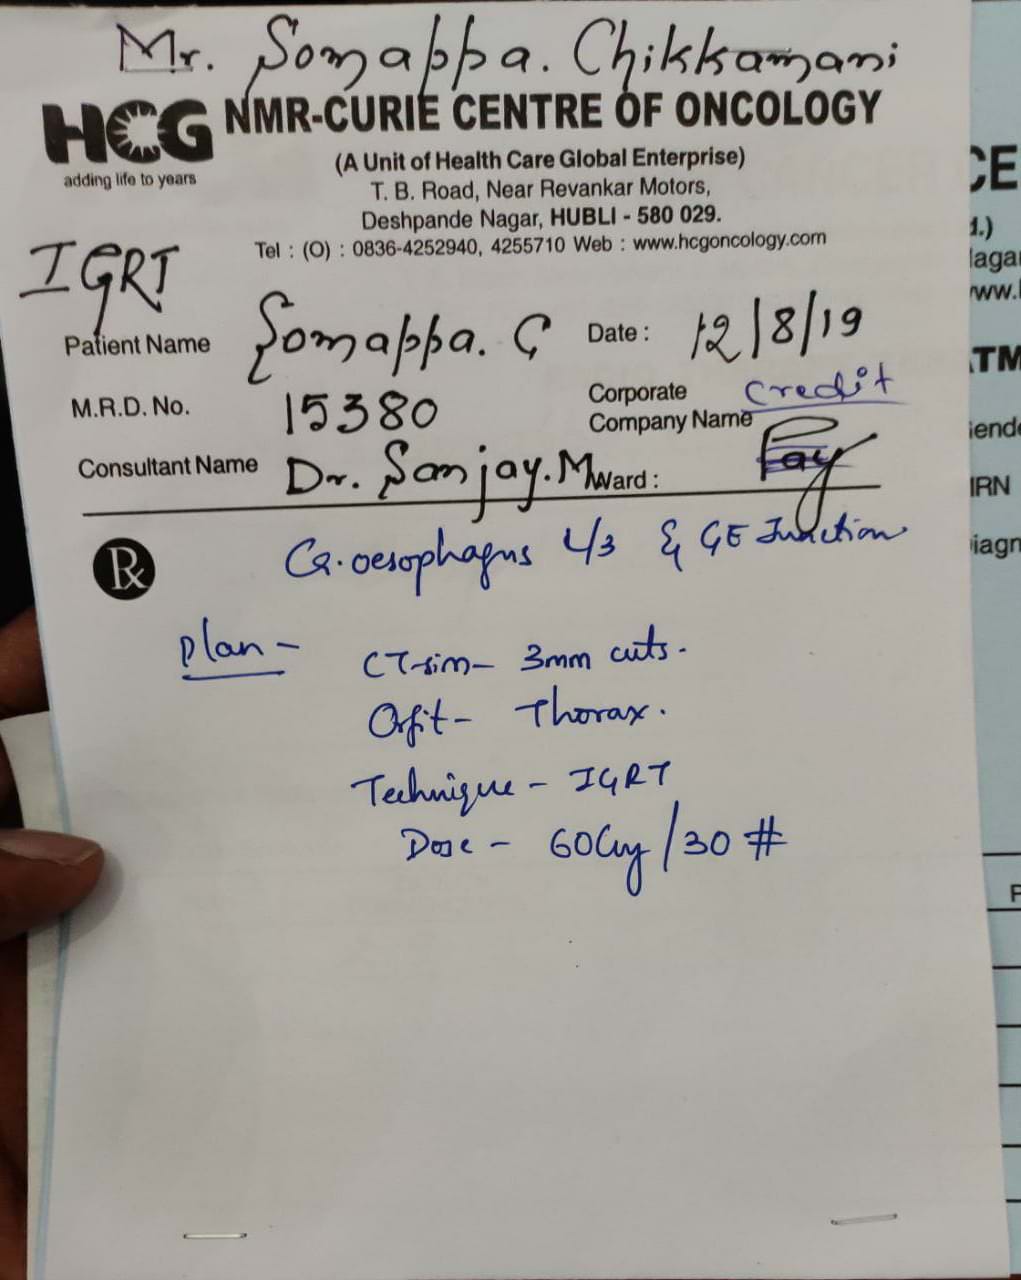 Mr. Somappa. Chikkamani
HCG
adding life to years
NMR-CURIE CENTRE OF ONCOLOGY
(A Unit of Health Care Global Enterprise)
T. B. Road, Near Revankar Motors,
Deshpande Nagar, HUBLI - 580 029.
Tel : (O) : 0836-4252940, 4255710 Web : www.hcgoncology.com
IGRT
Patient Name Somappa. C Date : 12/8/19
M.R.D. No. 15380 Corporate Company Name credit
Consultant Name Dr. Sanjay. M Ward : Pay
Rx Ca. oesophagus L/3 & GE Junction
Plan - CT-sim - 3mm cuts.
Orfit - Thorax.
Technique - IGRT
Dose - 60Gy/30 #
CE
d.)
www.
TM
IRN